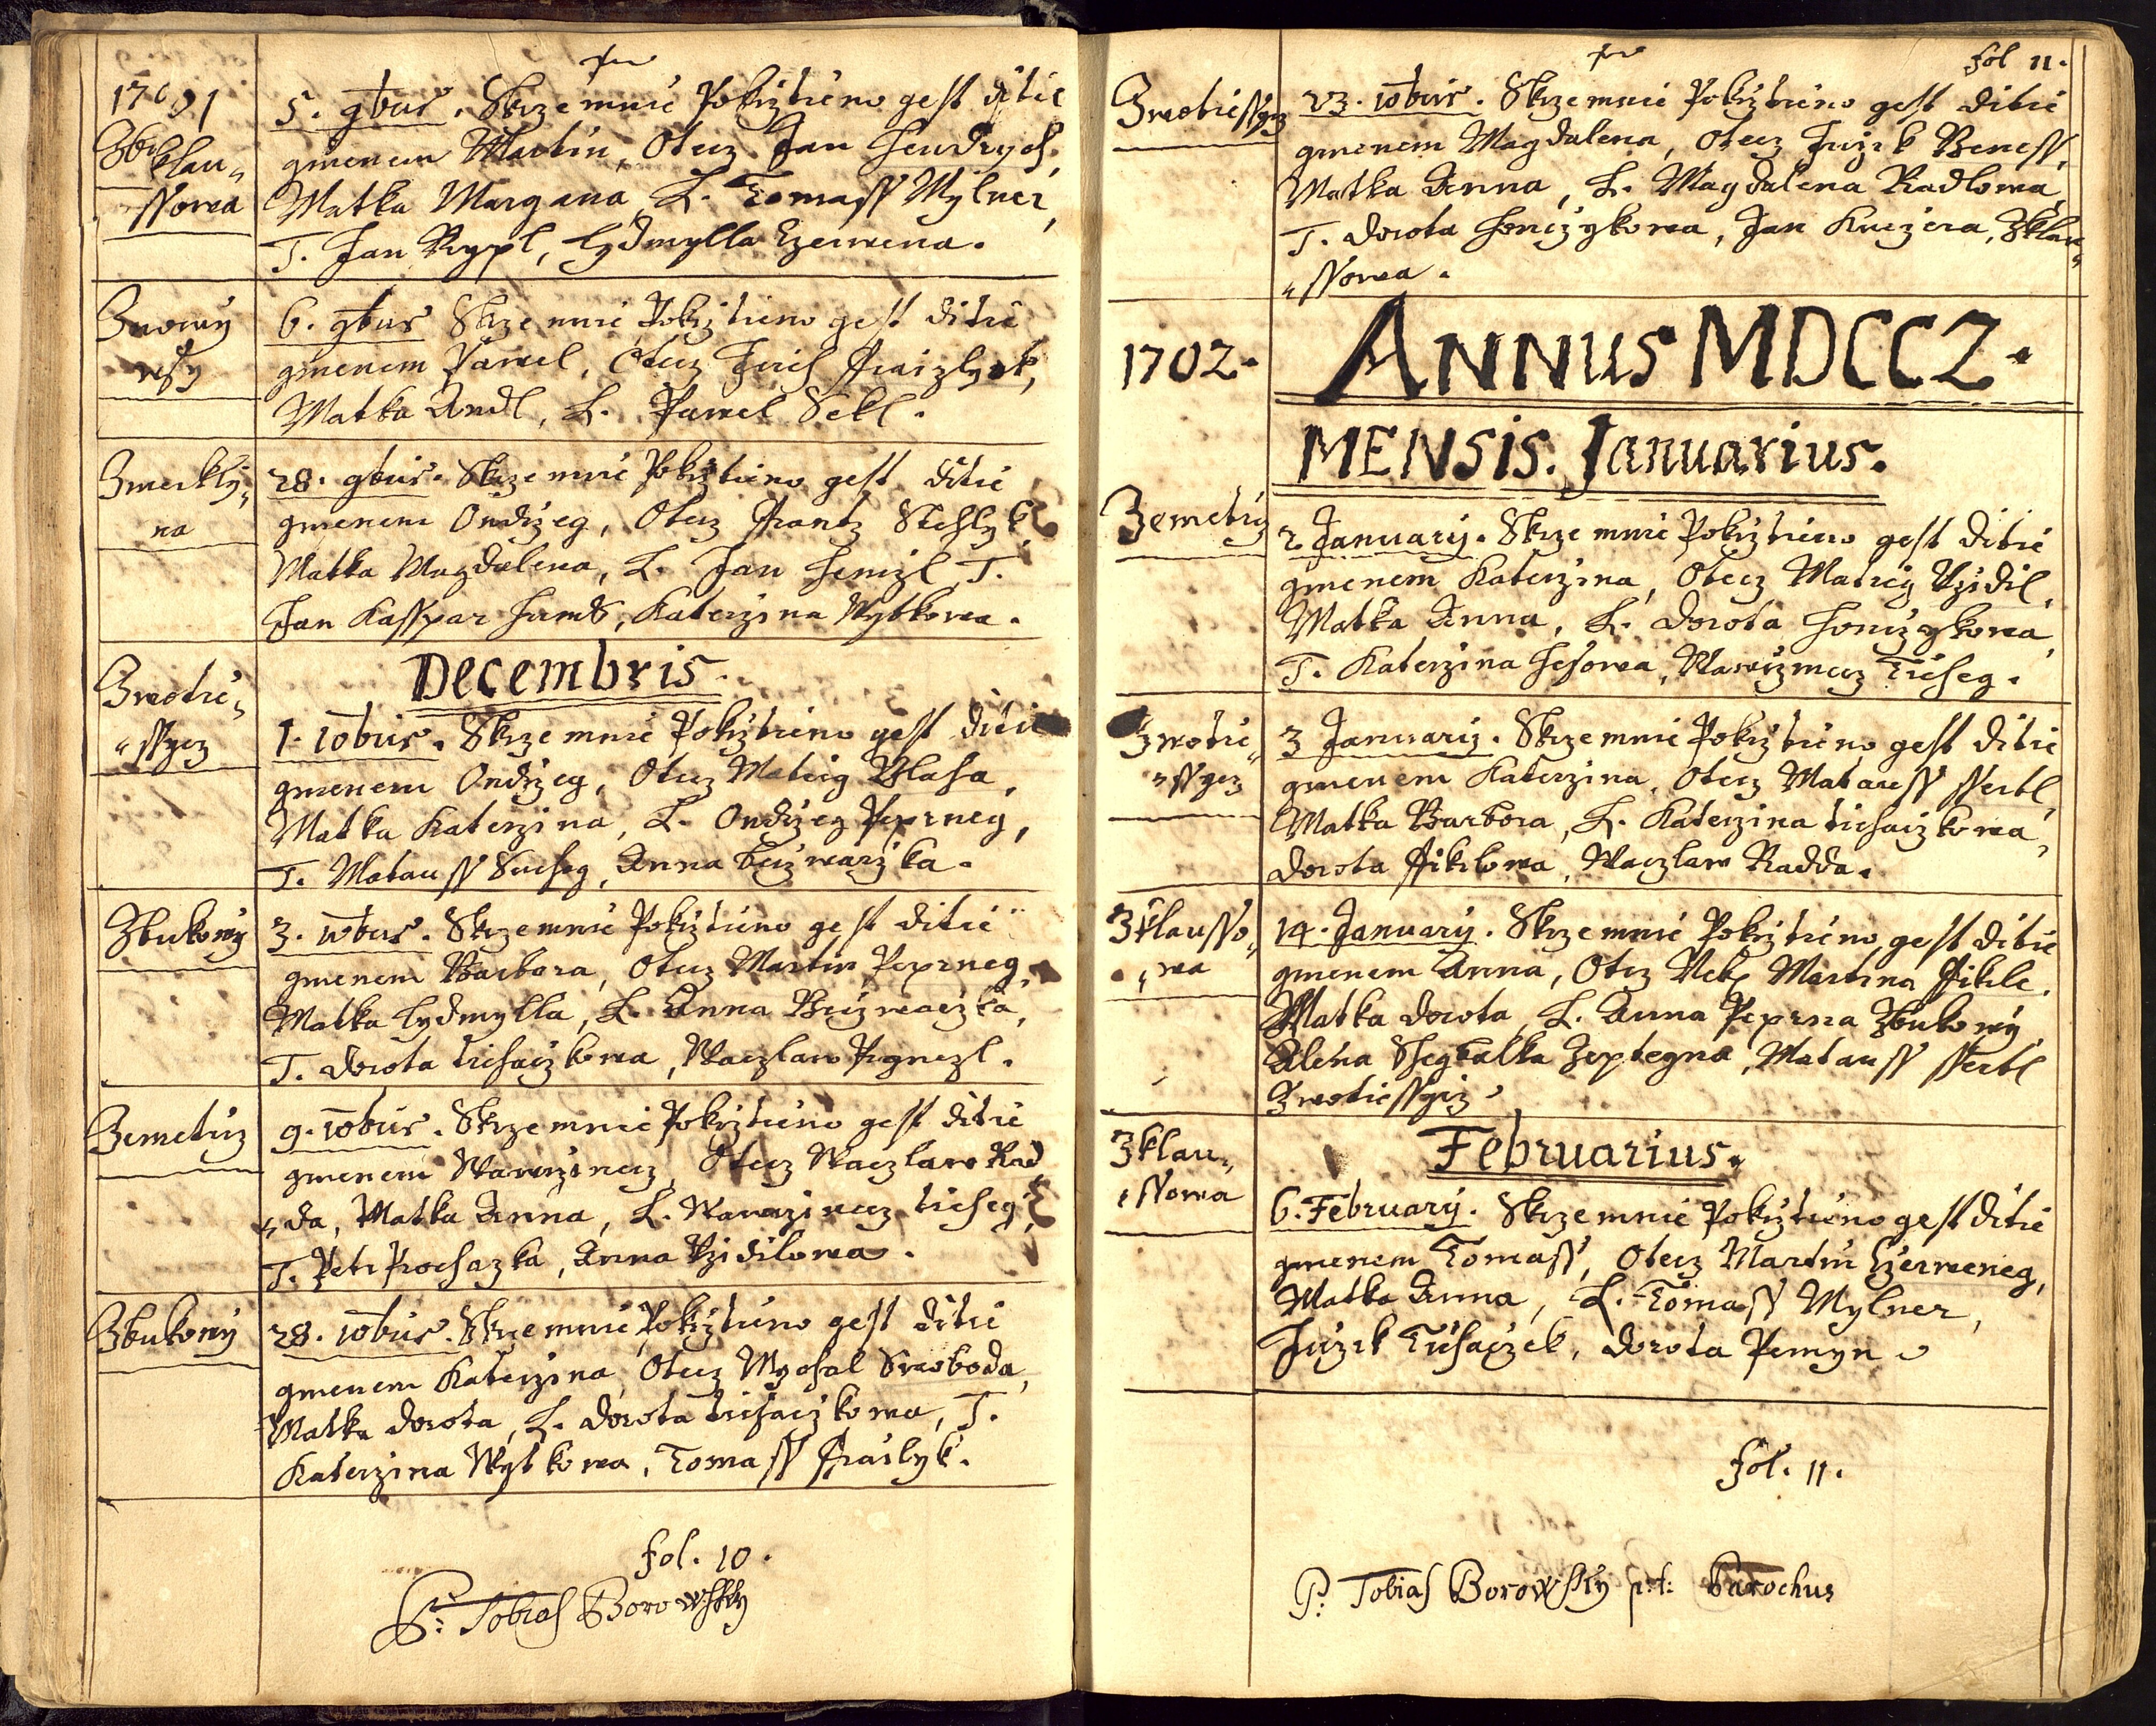 1701
Zbi klau„
ssowa
5. 9bus. Skrze mnie Pokrztieno gest ditie
gmenem Martin, Otecz Jan Hendrych,
Matka Margana, L. Tomass Mylner,
T. Jan Rypl, Lydmylla Czerwena.
Znowy
wsy
6. 9bus Skrze mnie Pokrztieno gest ditie
gmenem Pawel, Otecz Jirich
Matka Andl, L. Pawel Sekl.
Zmerkly„
na
28. 9bus. Skrze mnie Pokrztieno gest ditie
gmenem Ondrzeg, Otecz Frantz Stehlyk,
Matka Magdalena, L. Jan Henzl, T.
Jan Kasspar, Katerzina Wytkowa.
Decembris.
Zwotie„
„ssycz
1. 10bus. Skrze mnie Pokrztieno gest ditie
gmenem Ondrzeg, Otecz Matieg Blaha,
Matka Katerzina, L. Ondrzeg Peprneg,
T. Matauss Sucheg, Anna
Zbukowy
3. 10bus. Skrze mnie Pokrztieno gest ditie
gmenem Barbora, Otecz Martin Peprneg,
Matka Lydmylla, L. Anna
T. Dorota Tichaczkowa, Waczlaw
Zemeticz
9. 10bus. Skrze mnie Pokrztieno gest ditie
gmenem Wawrzinecz, Otecz Waczlaw Rad
„da, Matka Anna, L. Wawrzinecz Ticheg,
T. Petr Prochazka, Anna Przidilowa.
Zbukowy
28. 10bus. Skrze mnie Pokrztieno gest ditie
gmenem Katerzina, Otecz Mychal Swoboda,
Matka Dorota, L. Dorota Tichaczkowa, T.
Katerzina Wytkowa, Tomass
fol. 10.
P: Tobias Borowsky
fol 11.
Zwotiessycz
23. 10bus. Skrze mnie Pokrztieno gest ditie
gmenem Magdalena, Otecz Jirzik Beness,
Matka Anna, L. Magdalena Radlowa,
T. Dorota Honczykowa, Jan Kuczera, Zklau„
„ssowa.
1702.
ANNUS MDCC2.
MENSIS. Januarius.
Zemeticz
2 January. Skrze mnie Pokrztieno gest ditie
gmenem Katerzina, Otecz Matieg Przidil,
Matka Anna, L. Dorota Honczykowa,
T. Katerzina, Wawrzinecz Ticheg.
Zwotie„
„ssycz
3 January. Skrze mnie Pokrztieno gest ditie
gmenem Katerzina, Otecz Matauss ssertl,
Matka Barbora, L. Katerzina Tichaczkowa,
Dorota Fikrlowa, Waczlaw Radda.
Zklausso„
„wa
14. January. Skrze mnie Pokrztieno gest ditie
gmenem Anna, Otecz Martina Fikrle,
Matka Dorota, L. Anna Peprna Zbukowy
Alena, Matauss ssertl
Zwotiessycz
Zklau„
„ssowa
Februarius.
6. February. Skrze mnie Pokrztieno gest ditie
gmenem Tomass, Otecz Martin Czerweneg,
Matka Anna, L. Tomass Mylner,
Jirzik Tichaczek, Dorota
fol. 11.
P: Tobias Borowsky p:t: Parochus